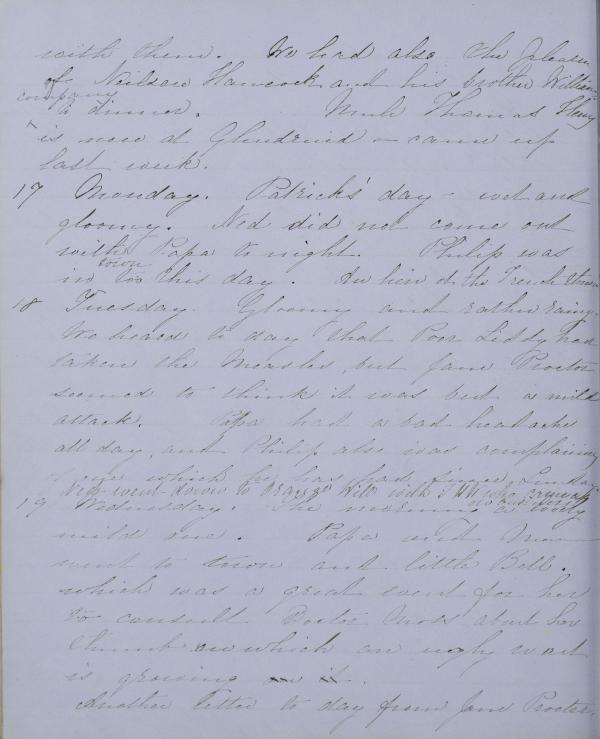 with them. We had also the pleasure
of Neilson Hancock and his brother William
company
to dinner. Uncle Thomas Henry
is now at Glendruid - came up
last week.
17 Monday. Patrick's day - wet and
gloomy. Ned did not come out
with Papa to night. Philip was
town
in too this day. An heir to the French throne
18 Tuesday. Gloomy and rather rainy.
We heard to day that Poor Liddy had
taken the Measles, but Jane Proctor
seemed to think it was but a mild
attack. Papa had a bad headache
all day, and Philip also was complaining
of one which he has had since Sunday
Ned went down to Orange Hill with THW who came up
19 Wednesday. The morning a lovely
mild one. Papa and
went to town and little Bell.
which was a great event for her
to consult Doctor Moss about her
thumb on which an ugly wart
is growing on it.
Another letter to day from Jane Proctor